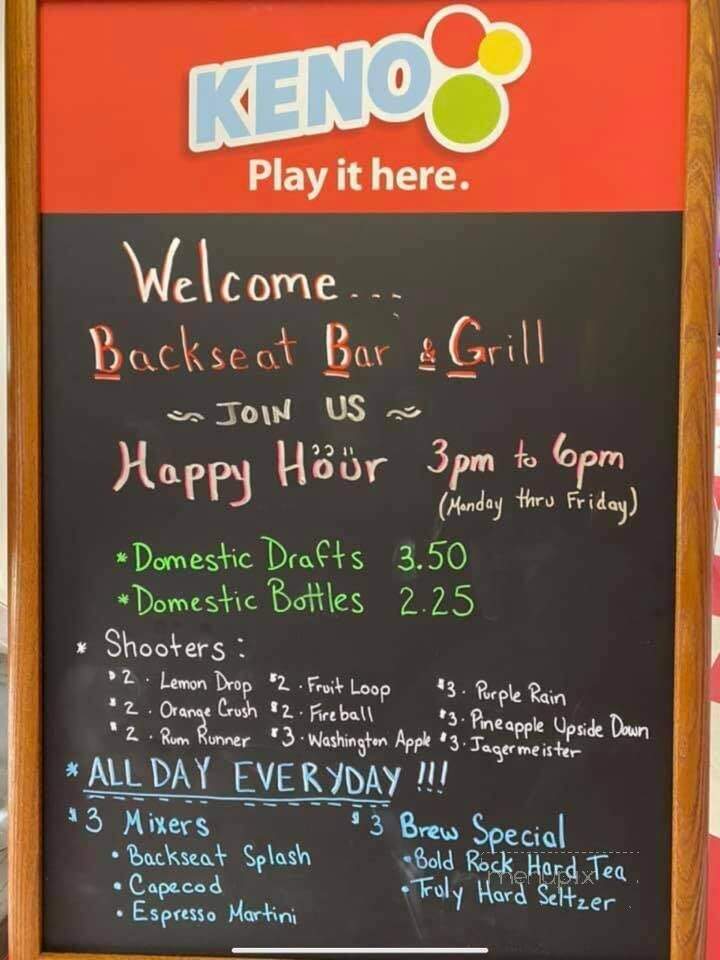 KENO
Play it here.
Welcome...
Backseat Bar & Grill
~ JOIN US ~
Happy Höür 3pm to 6pm
(Monday thru Friday)
* Domestic Drafts 3.50
* Domestic Bottles 2.25
* Shooters:
$2. Lemon Drop $2. Fruit Loop $3. Purple Rain
$2. Orange Crush $2. Fireball $3. Pineapple Upside Down
$2. Rum Runner $3. Washington Apple $3. Jagermeister
* ALL DAY EVERYDAY!!!
$3 Mixers $3 Brew Special
• Backseat Splash • Bold Rock Hard Tea
• Capecod • Truly Hard Seltzer
• Espresso Martini
menupix